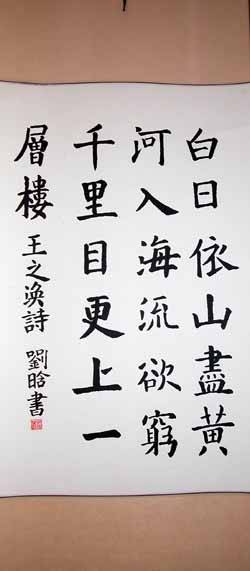 白日依山盡黄
河入海流欲窮
千里目更上一
層樓 王之渙詩 劉晗書